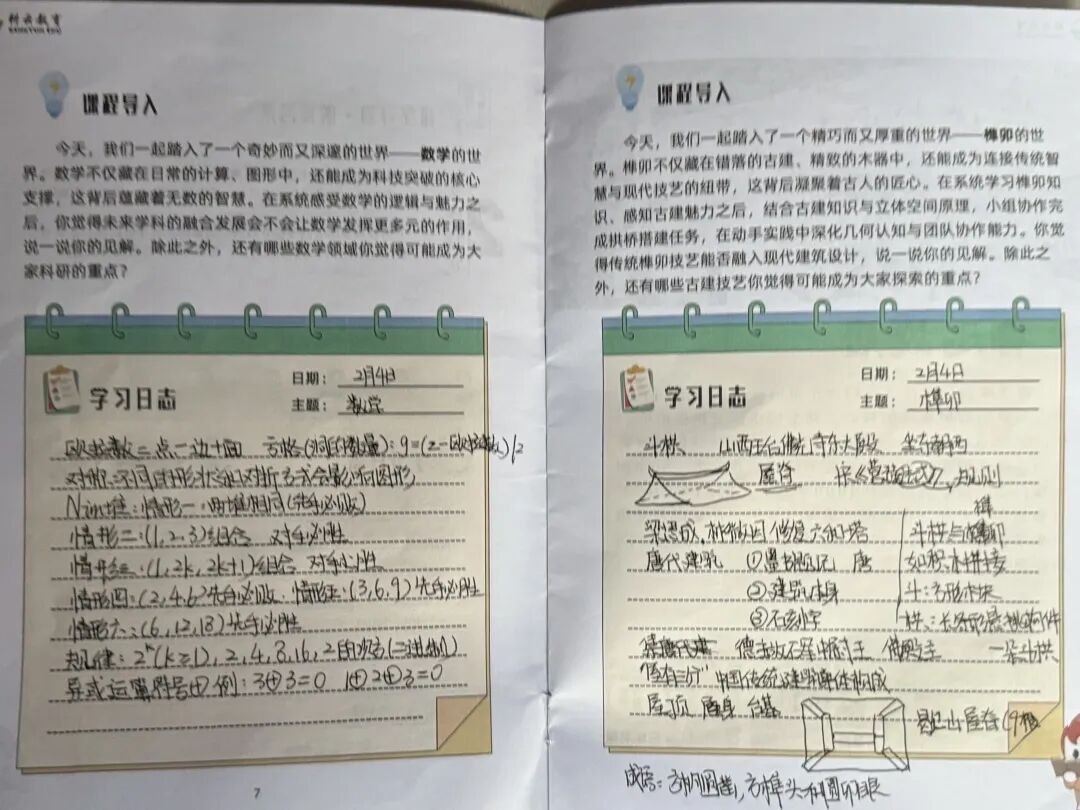 科云教育
课程导入
今天，我们一起踏入了一个奇妙而又深邃的世界——数学的世
界。数学不仅藏在日常的计算、图形中，还能成为科技突破的核心
支撑，这背后蕴藏着无数的智慧。在系统感受数学的逻辑与魅力之
后，你觉得未来学科的融合发展会不会让数学发挥更多元的作用，
说一说你的见解。除此之外，还有哪些数学领域你觉得可能成为大
家科研的重点？
学习日志
日期：2月4日
主题：数学
欧拉数=点-边+面 方格(洞的数量)：g=(2-欧拉数)/2
对称：不同的形状和对折方式会影响图形
Nim堆：情形一：两堆相同(先手必败)
情形二：(1,2,3)组合 对手必胜
情形三：(1,2k,2k+1)组合 对手必胜
情形四：(2,4,6)先手必败 情形五：(3,6,9)先手必胜
情形六：(6,12,18)先手必胜
规律：2^k(k≥1),2,4,8,16,2的幂(二进制)
异或运算符号⊕ 例：3⊕3=0 1⊕2⊕3=0
7
课程导入
今天，我们一起踏入了一个精巧而又厚重的世界——榫卯的世
界。榫卯不仅藏在错落的古建、精致的木器中，还能成为连接传统智
慧与现代技艺的纽带，这背后凝聚着古人的匠心。在系统学习榫卯知
识、感知古建魅力之后，结合古建知识与立体空间原理，小组协作完
成拱桥搭建任务，在动手实践中深化几何认知与团队协作能力。你觉
得传统榫卯技艺能否融入现代建筑设计，说一说你的见解。除此之
外，还有哪些古建技艺你觉得可能成为大家探索的重点？
学习日志
日期：2月4日
主题：榫卯
斗栱：山西五台佛光寺东大殿 坐东朝西
屋脊 宋《营造法式》
榫
梁思成，林徽因 修复六和塔 斗栱与榫卯
唐代建筑 ①墨书题记 唐 如积木拼接
②建筑本身 斗：方形木块
③石刻字 栱：长条形
一朵斗栱
"屋有三分" 中国传统建筑
屋顶 屋身 台基
歇山屋脊(9
成语：方枘圆凿，方榫头和圆卯眼